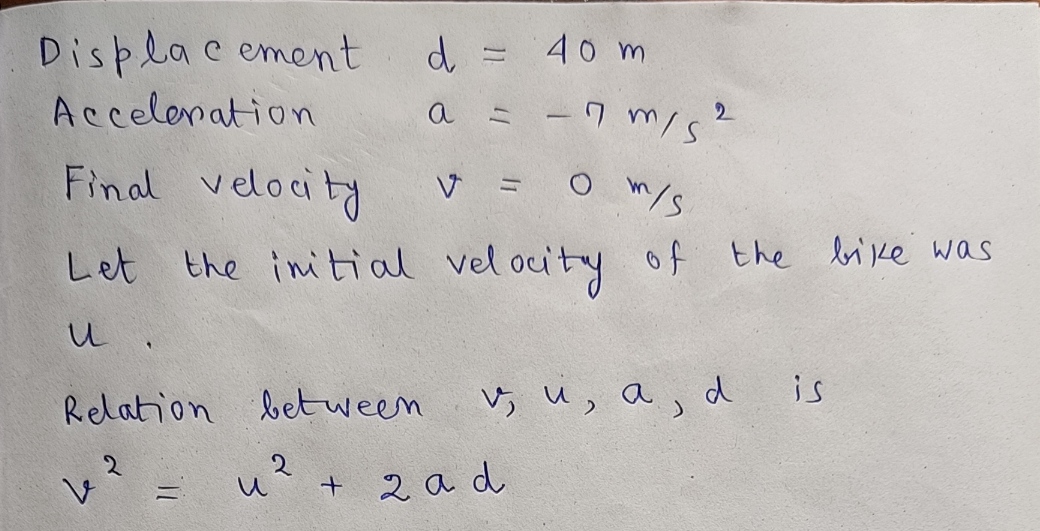 Displacement d = 40 m
Acceleration a = -7 m/s²
Final velocity v = 0 m/s
Let the initial velocity of the bike was
u.
Relation between v, u, a, d is
v² = u² + 2ad